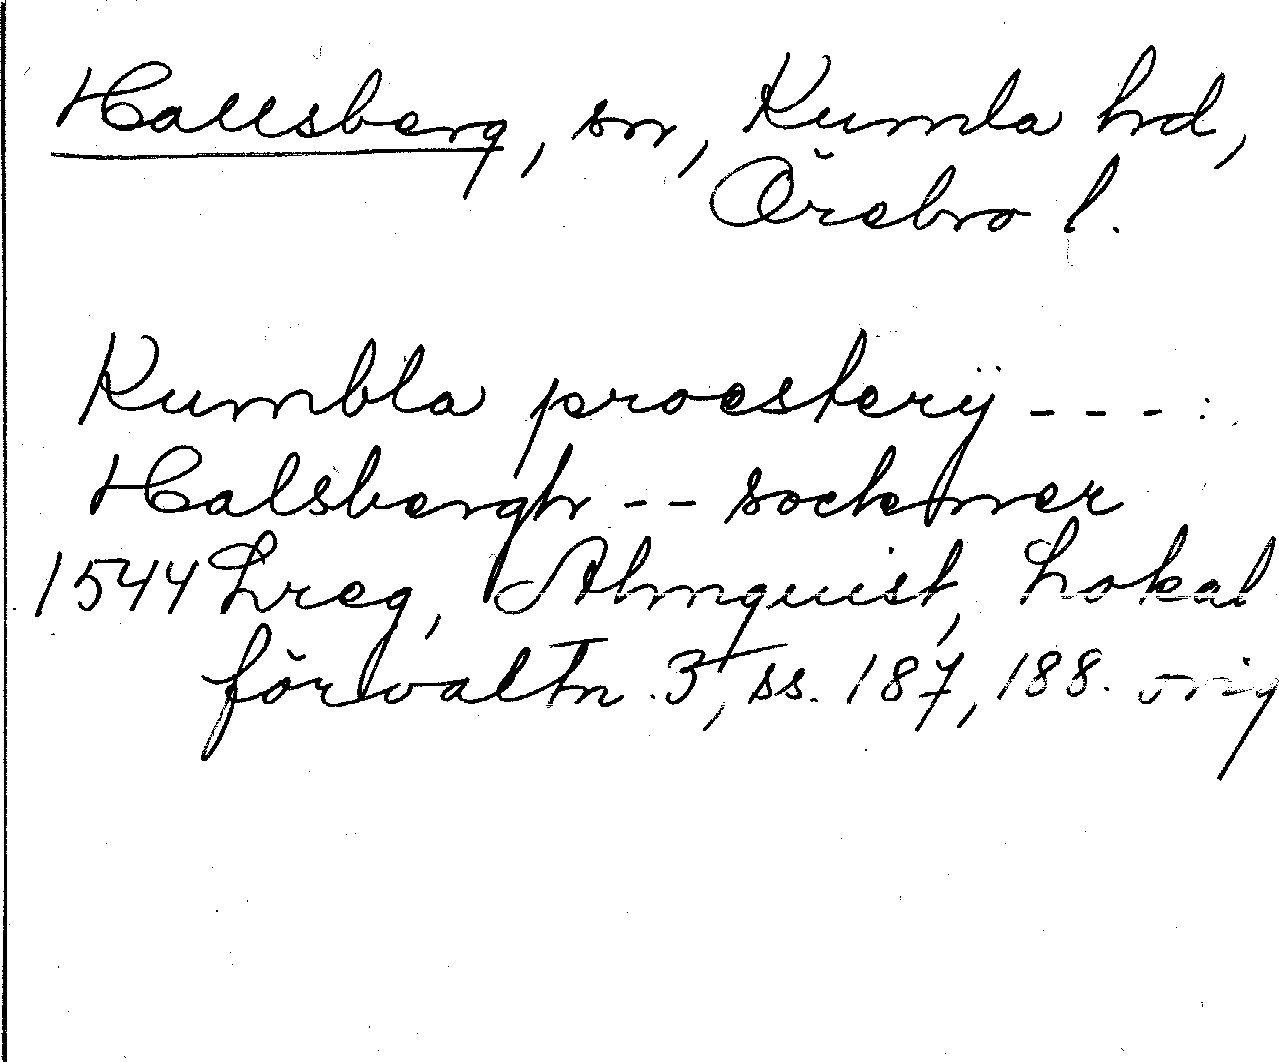 Hallsberg, sn, Kumla hd,
Örebro l.
Kumbla proesterÿ - - - :
Halsbergh - - socknner
1544 Lreg, Almquist, Lokal
förvaltn. 3, ss. 187, 188. orig